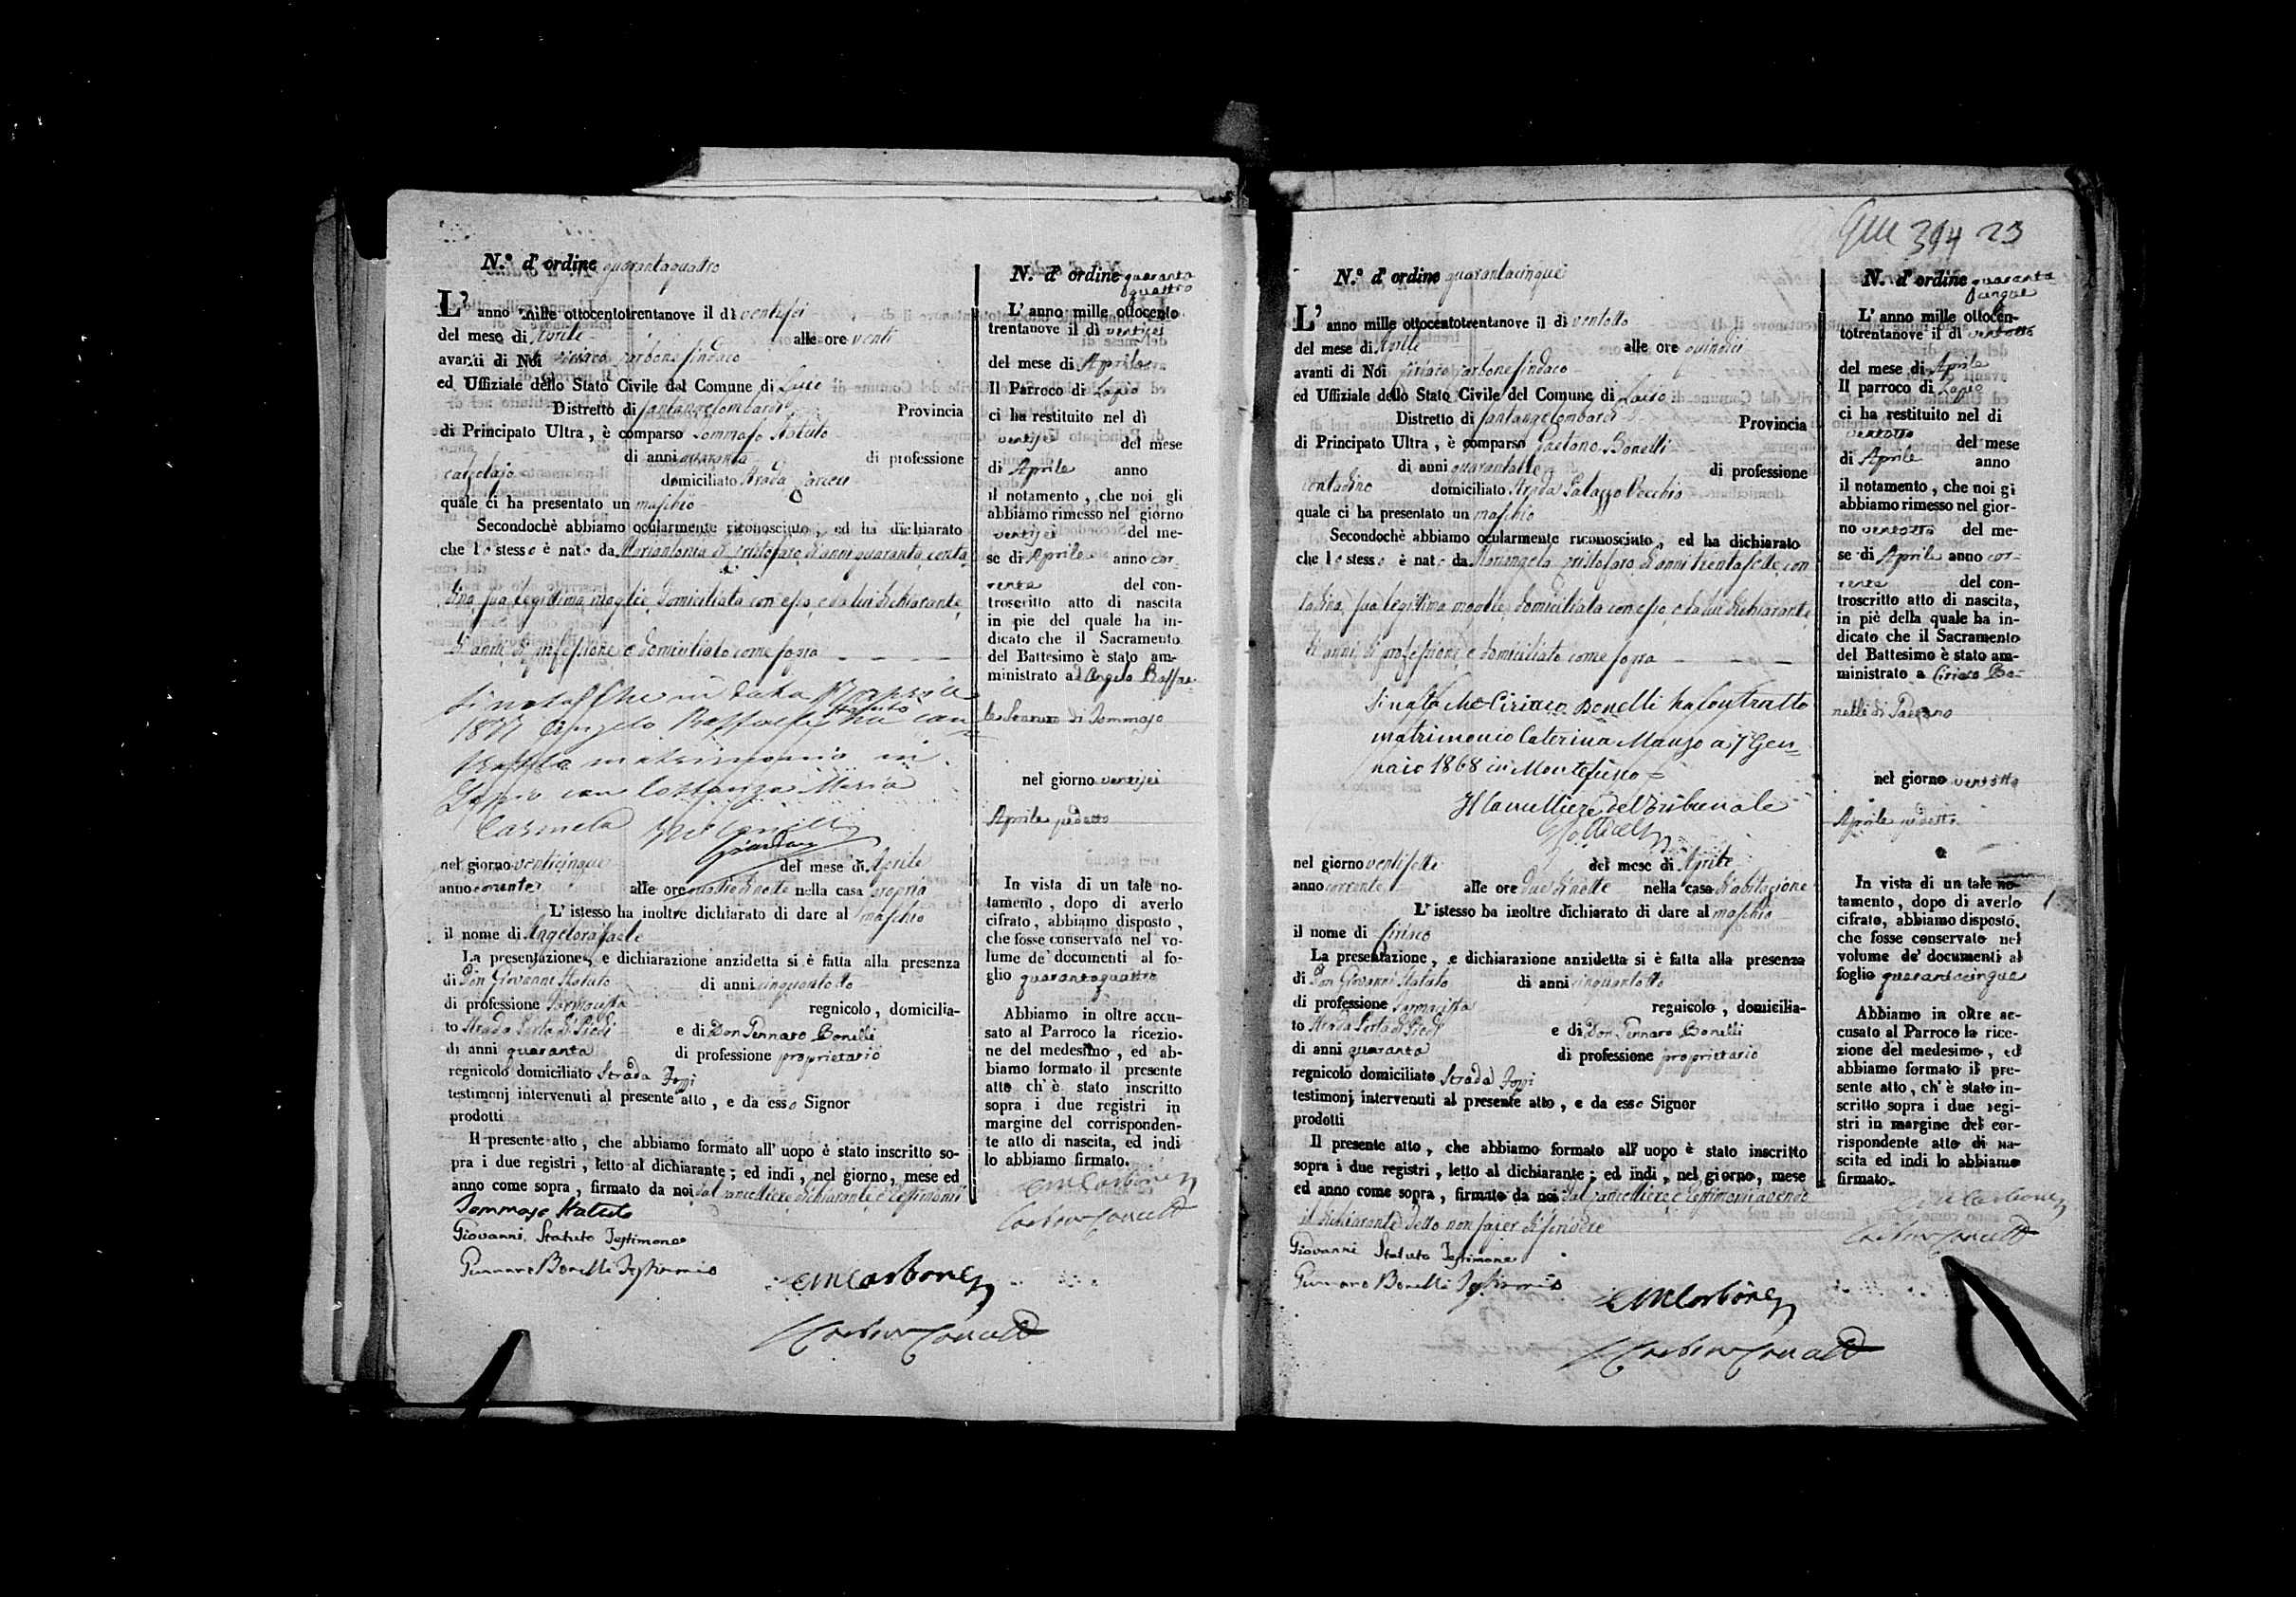 N.º d'ordine quarantaquattro
L' anno mille ottocentotrentanove il dì ventisei
del mese di Aprile alle ore venti
avanti di Noi Ciriaco Carbone Sindaco
ed Uffiziale dello Stato Civile dal Comune di Lapio
Distretto di Santangelombardi Provincia
di Principato Ultra, è comparso Tommaso Statuto
di anni quaranta di professione
calzolajo domiciliato Strada
quale ci ha presentato un maschio
Secondochè abbiamo ocularmente riconosciuto, ed ha dichiarato
che lo stesso è nato da Mariantonia di Cristofaro di anni quaranta, conta-
dina, sua legittima moglie, domiciliata con esso, e da lui dichiarante
di anni, di professione e domiciliato come sopra
Si nota che in data aprile
1877 Angelo Raffaele Statuto ha con-
tratto matrimonio in
Lapio con Costanza Maria
Carmela
nel giorno venticinque del mese di Aprile
anno corrente alle ore quattro di notte nella casa propria
L' istesso ha inoltre dichiarato di dare al maschio
il nome di Angeloraffaele
La presentazione, e dichiarazione anzidetta si è fatta alla presenza
di Don Giovanni Statuto di anni cinquantotto
di professione Farmacista regnicolo, domicilia-
to Strada Porta di Piedi e di Don Gennaro Bonelli
di anni quaranta di professione proprietario
regnicolo domiciliato Strada
testimonj intervenuti al presente atto, e da esso Signor
prodotti
Il presente atto, che abbiamo formato all' uopo è stato inscritto so-
pra i due registri, letto al dichiarante; ed indi, nel giorno, mese ed
anno come sopra, firmato da noi dal Cancelliere dichiarante e testimonii
Tommaso Statuto
Giovanni Statuto Testimone
Gennaro Bonelli Testimonio
Carbone
N. d' ordine quaranta
quattro
L' anno mille ottocento
trentanove il dì ventisei
del mese di Aprile
Il Parroco di Lapio
ci ha restituito nel dì
ventisei del mese
di Aprile anno
il notamento, che noi gli
abbiamo rimesso nel giorno
ventisei del me-
se di Aprile anno cor-
rente del con-
troscritto atto di nascita
in pie del quale ha in-
dicato che il Sacramento
del Battesimo è stato am-
ministrato a Angelo Raffae-
le Statuto di Tommaso
nel giorno ventisei
Aprile sudetto
In vista di un tale no-
tamento, dopo di averlo
cifrato, abbiamo disposto,
che fosse conservato nel vo-
lume de' documenti al fo-
glio quarantaquattro
Abbiamo in oltre accu-
sato al Parroco la ricezio-
ne del medesimo, ed ab-
biamo formato il presente
atto ch' è stato inscritto
sopra i due registri in
margine del corrisponden-
te atto di nascita, ed indi
lo abbiamo firmato.
Carbone
394 23
N.º d' ordine quarantacinque
L' anno mille ottocentotrentanove il dì ventotto
del mese di Aprile alle ore quindici
avanti di Noi Ciriaco Carbone Sindaco
ed Uffiziale dello Stato Civile del Comune di Lapio
Distretto di Santangelombardi Provincia
di Principato Ultra, è comparso Gaetano Bonelli
di anni quarantasette di professione
contadino domiciliato Strada Palazzo Vecchio
quale ci ha presentato un maschio
Secondochè abbiamo ocularmente riconosciuto, ed ha dichiarato
che lo stesso è nato da Mariangela Cristofaro di anni trentasette, con-
tadina, sua legittima moglie, domiciliata con esso, e da lui dichiarante
di anni, di professione e domiciliato come sopra
Si nota che Ciriaco Bonelli ha contratto
matrimonio Caterina Manzo a 7 Gen-
naio 1868 in Montefusco
Il Cancelliere del Tribunale
nel giorno ventisette del mese di Aprile
anno corrente alle ore due di notte nella casa di abitazione
L' istesso ha inoltre dichiarato di dare al maschio
il nome di Ciriaco
La presentazione, e dichiarazione anzidetta si è fatta alla presenza
di Don Giovanni Statuto di anni cinquantotto
di professione Farmacista regnicolo, domicilia-
to Strada Porta di Piedi e di Don Gennaro Bonelli
di anni quaranta di professione proprietario
regnicolo domiciliato Strada
testimonj intervenuti al presente atto, e da esso Signor
prodotti
Il presente atto, che abbiamo formato all' uopo è stato inscritto
sopra i due registri, letto al dichiarante; ed indi, nel giorno, mese
ed anno come sopra, firmato da noi dal Cancelliere e testimonii avendo
il dichiarante detto non saper di scrivere
Giovanni Statuto Testimone
Gennaro Bonelli Testimonio
Carbone
N. d' ordine quaranta
cinque
L' anno mille ottocen-
totrentanove il dì ventotto
del mese di Aprile
Il parroco di Lapio
ci ha restituito nel di
ventotto del mese
di Aprile anno
il notamento, che noi gi
abbiamo rimesso nel gior-
no ventotto del me-
se di Aprile anno cor-
rente del con-
troscritto atto di nascita,
in piè della quale ha in-
dicato che il Sacramento
del Battesimo è stato am-
ministrato a Ciriaco Bo-
nelli di Gaetano
nel giorno ventotto
Aprile sudetto
In vista di un tale no-
tamento, dopo di averlo
cifrato, abbiamo disposto,
che fosse conservato nel
volume de' documenti al
foglio quarantacinque
Abbiamo in oltre ac-
cusato al Parroco la rice-
zione del medesimo, ed
abbiamo formato il pre-
sente atto, ch' è stato in-
scritto sopra i due regi-
stri in margine del cor-
rispondente atto di na-
scita ed indi lo abbiamo
firmato.
Carbone